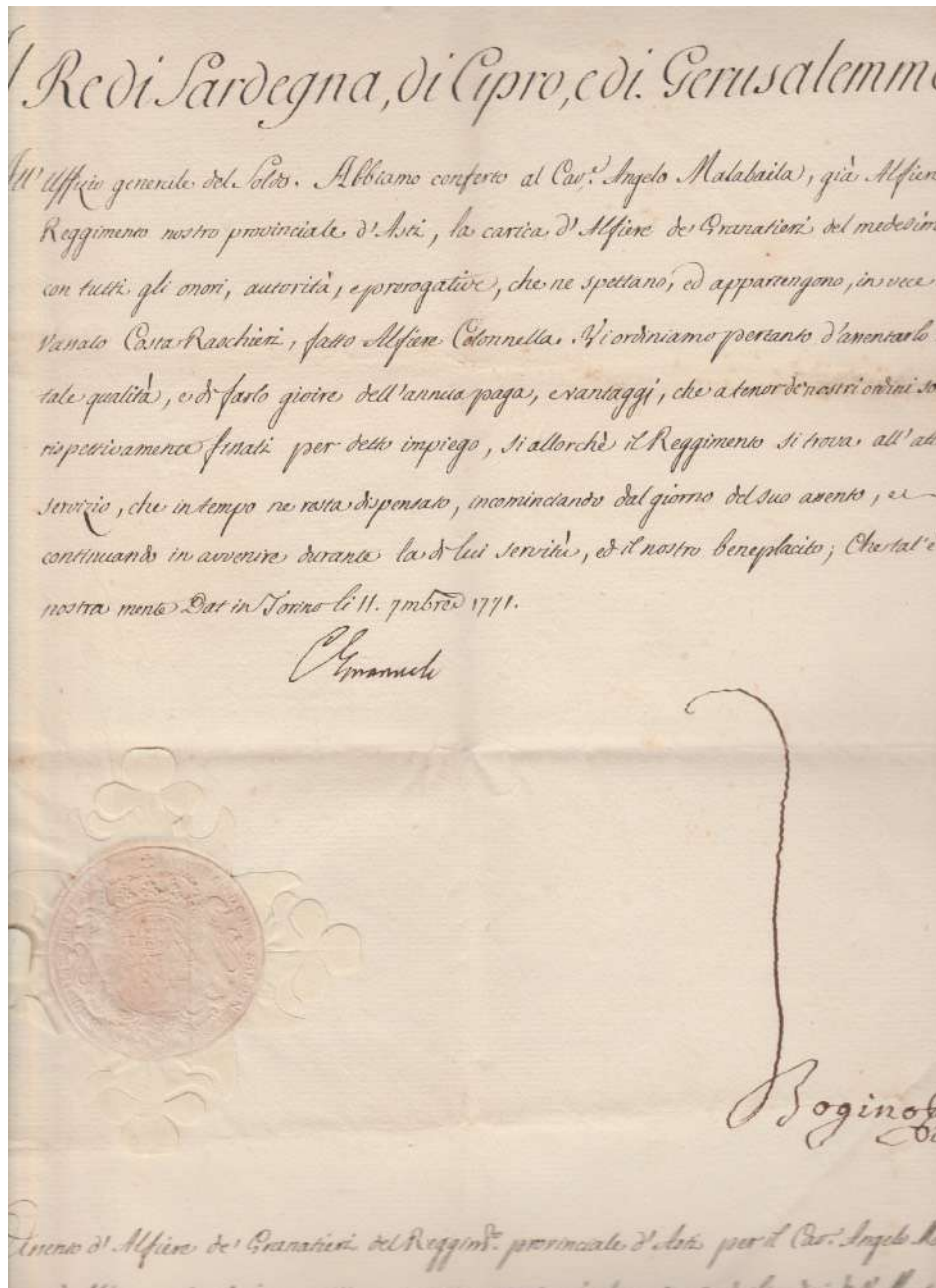 Il Re di Sardegna, di Cipro, e di Gerusalemme
All' Uffizio generale del Soldo. Abbiamo conferto al Cav.e Angelo Malabaila, già Alfiere
Reggimento nostro provinciale d'Asti, la carica d'Alfiere de' Granatieri del medesim
con tutti gli onori, autorità, e prerogative, che ne spettano, ed appartengono, in vece
Vassalo Costa Raschieri, fatto Alfiere Colonnella. Vi ordiniamo pertanto d'assentarlo
tale qualità, e di farlo gioire dell'annua paga, e vantaggi, che a tenor de' nostri ordini so
rispettivamente fissati per detto impiego, si allorchè il Reggimento si trova all'att
servizio, che in tempo ne resta dispensato, incominciando dal giorno del suo assento, e
continuando in avvenire durante la di lui servitù, ed il nostro beneplacito; Che tal'è
nostra mente Dat in Torino li 11. 7mbre 1771.
C Emanuele
Bogino
Assento d'Alfiere de' Granatieri del Reggim.to provinciale d'Asti per il Cav.e Angelo M